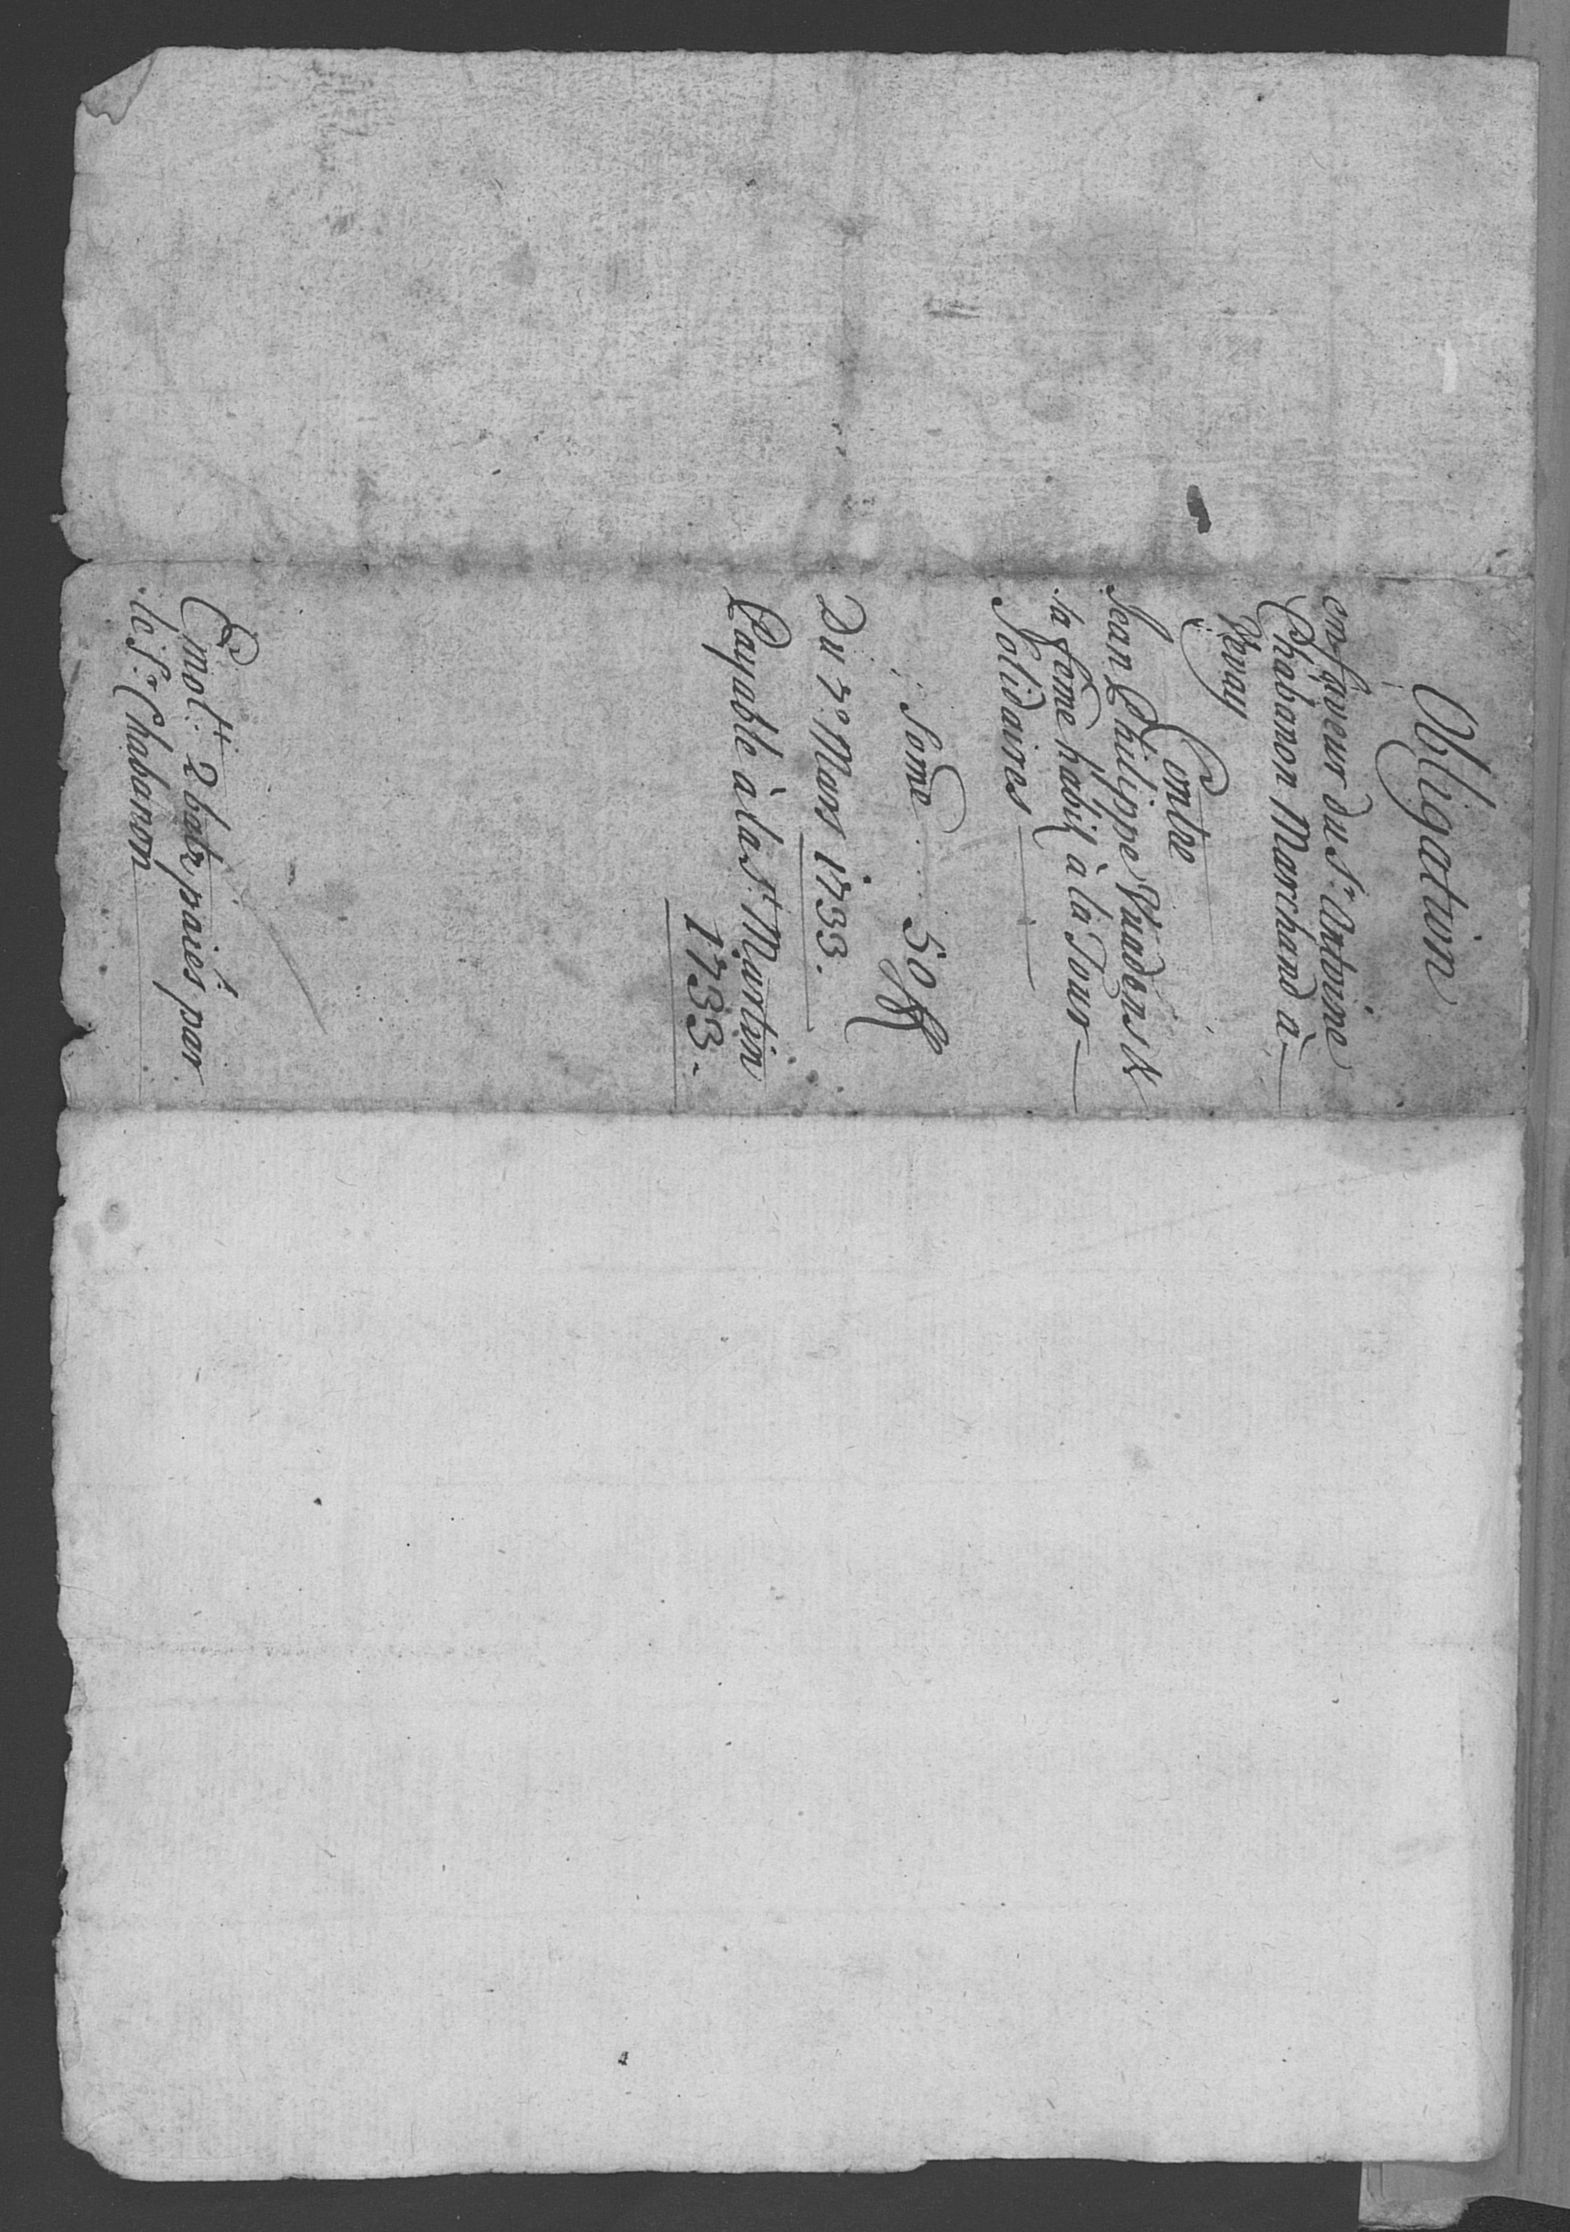 Obligation
en faveur du S.r Antoine
Chabanon Marchand à
Vevay
Contre
Jean Philippe Vuadens &
sa feme habit à la Tour
Solidaires
Some ..... 50 ff
Du 7.e Mars 1733.
Payable à la S.t Martin
1733.
Emol.t 2 batz paiés par
le S.r Chabanon